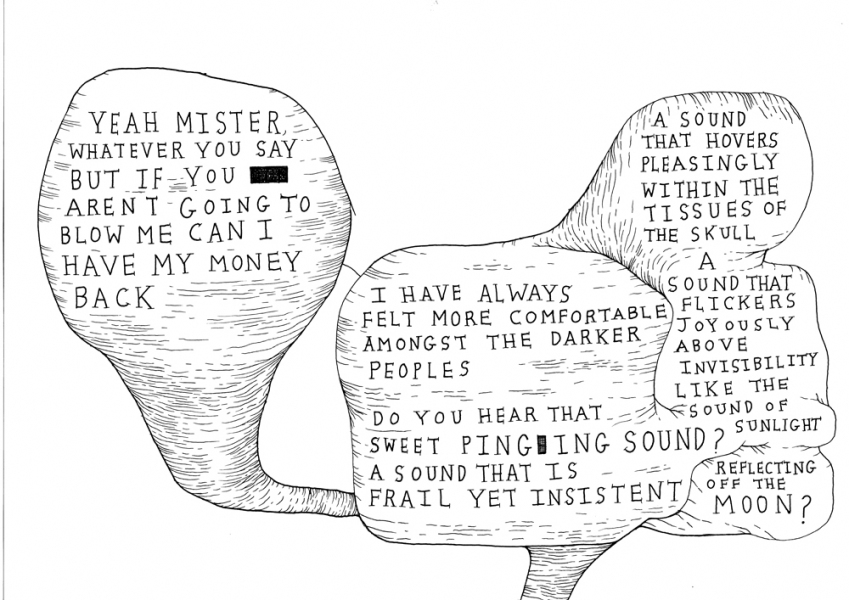 YEAH MISTER,
WHATEVER YOU SAY
BUT IF YOU
ARENT GOING TO
BLOW ME CAN I
HAVE MY MONEY
BACK
I HAVE ALWAYS
FELT MORE COMFORTABLE
AMONGST THE DARKER
PEOPLES
DO YOU HEAR THAT
SWEET PING ING SOUND?
A SOUND THAT IS
FRAIL YET INSISTENT
A SOUND
THAT HOVERS
PLEASINGLY
WITHIN THE
TISSUES OF
THE SKULL
A
SOUND THAT
FLICKERS
JOYOUSLY
ABOVE
INVISIBILITY
LIKE THE
SOUND OF
SUNLIGHT
REFLECTING
OFF THE
MOON?